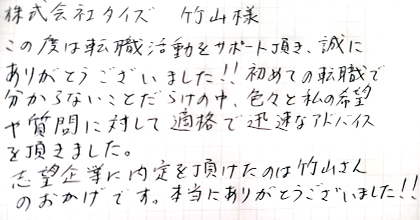 株式会社タイズ 竹山様
この度は転職活動をサポート頂き、誠に
ありがとうございました!! 初めての転職で
分からないことだらけの中、色々と私の希望
や質問に対して適格で迅速なアドバイス
を頂きました。
志望企業に内定を頂けたのは竹山さん
のおかげです。本当にありがとうございました!!